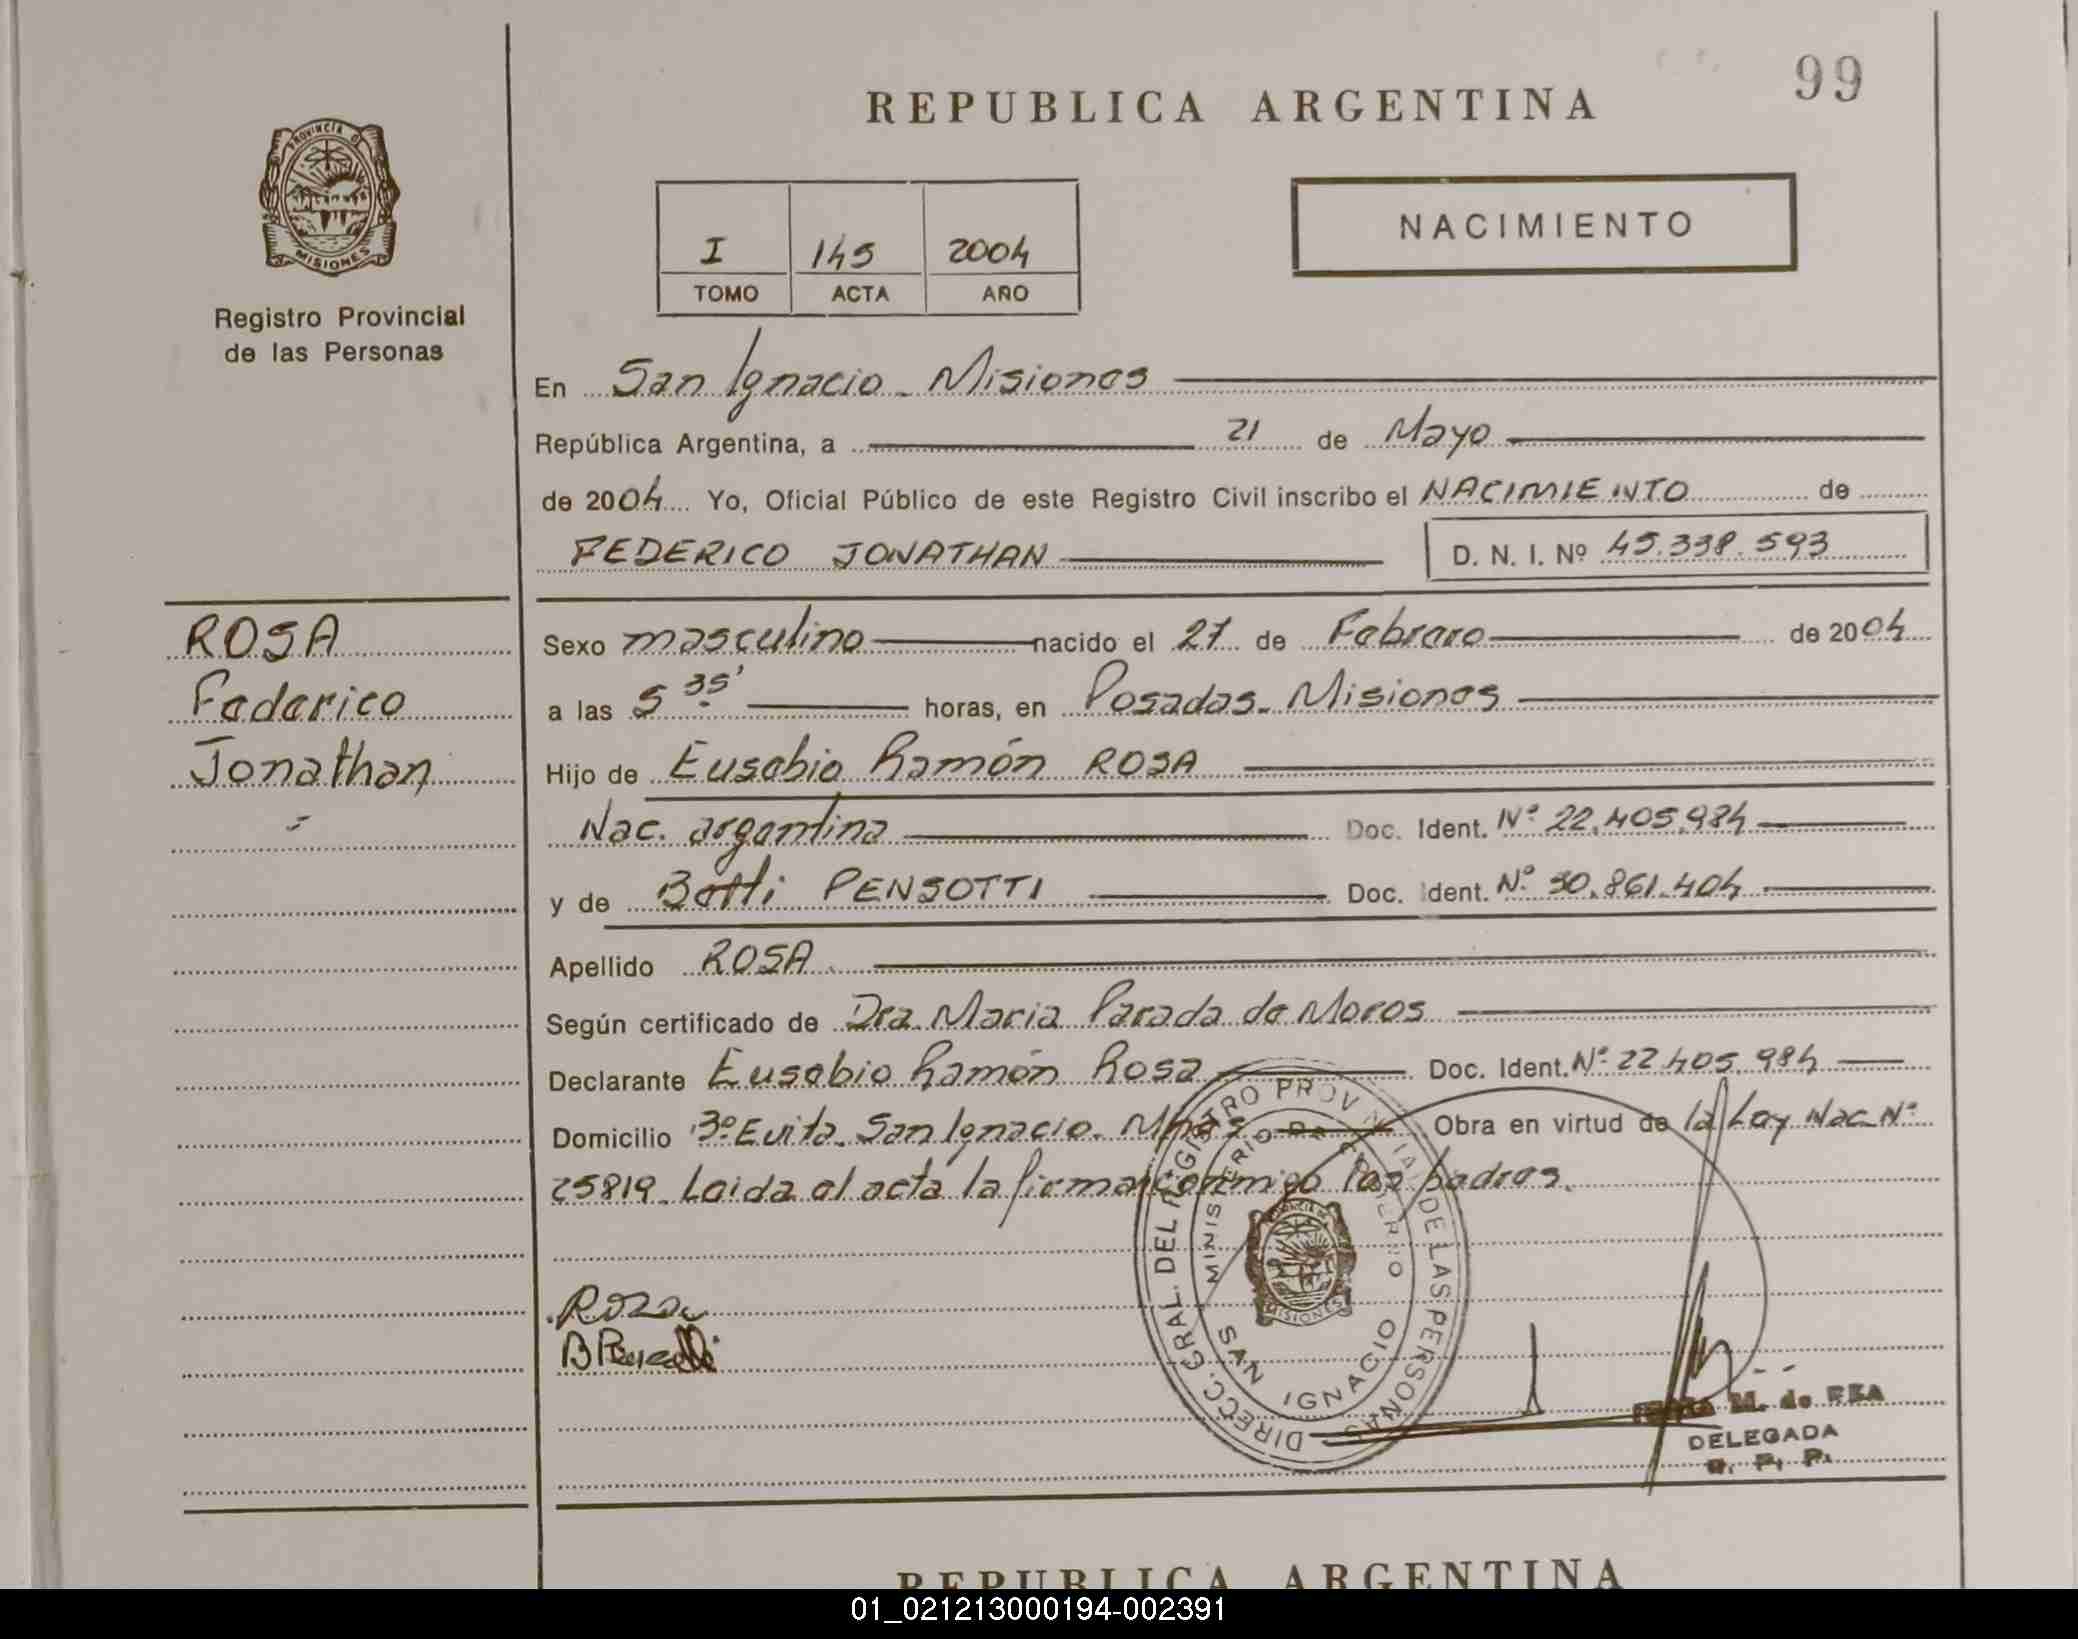 99
REPUBLICA ARGENTINA
PROVINCIA DE
MISIONES
Registro Provincial
de las Personas
I 145 2004
TOMO ACTA AÑO
NACIMIENTO
En San Ignacio - Misiones
República Argentina, a 21 de Mayo
de 2004 Yo, Oficial Público de este Registro Civil inscribo el NACIMIENTO de
FEDERICO JONATHAN D. N. I. Nº 45.338.593
ROSA
Federico
Jonathan
Sexo masculino nacido el 27 de Febrero de 2004
a las 5 35' horas, en Posadas - Misiones
Hijo de Eusebio Ramón ROSA
Nac. argentina Doc. Ident. Nº 22.405.984
y de Betti PENSOTTI Doc. Ident. Nº 30.861.404
Apellido ROSA
Según certificado de Dra. Maria Parada de Moros
Declarante Eusebio Ramón Rosa Doc. Ident. Nº 22.405.984
Domicilio Bº Evita. San Ignacio. Mnes Obra en virtud de la Ley Nac. Nº
25819. Leida el acta la firman conmigo los padres.
DIRECC. GRAL. DEL REGISTRO PROVINCIAL DE LAS PERSONAS
MINISTERIO DE GOBIERNO
SAN IGNACIO
MISIONES
Rosa
M. de REA
DELEGADA
R. P. P.
REPUBLICA ARGENTINA
01_021213000194-002391